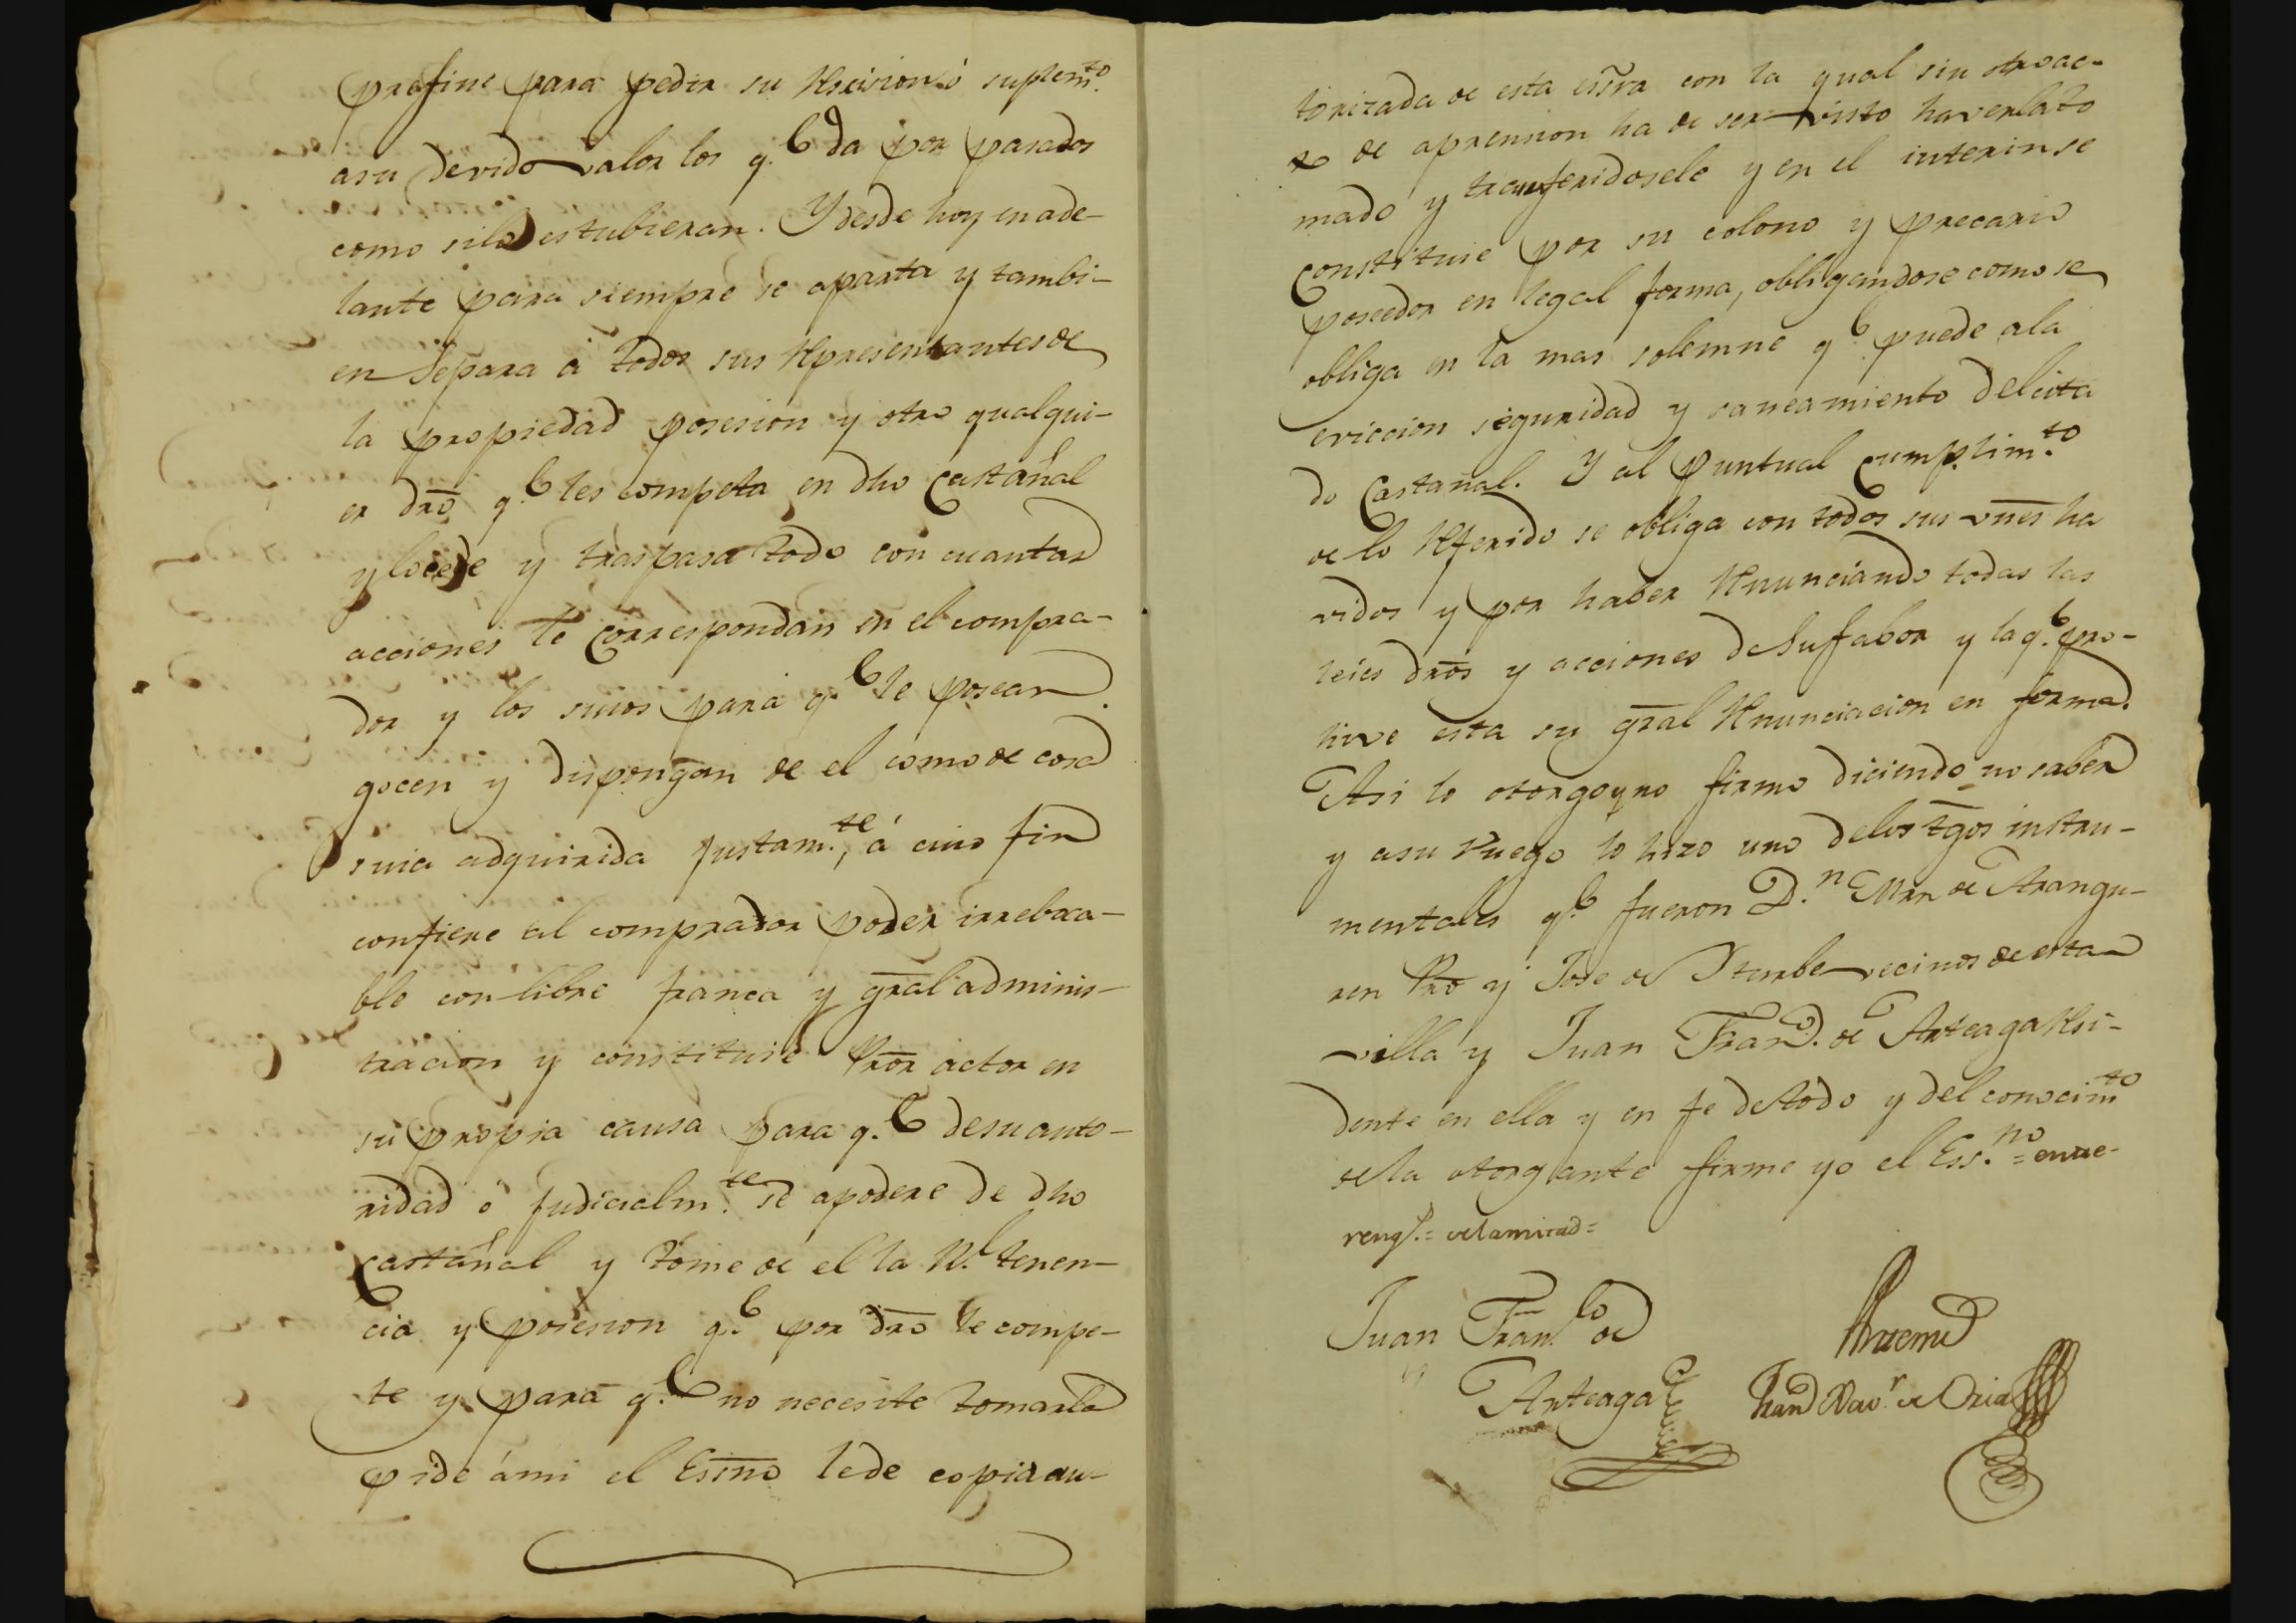 prefine para pedir su rescision ó suplem.to
a su devido valor los q.e da por pasados
como si lo estubieran. Y desde hoy en ade-
lante para siempre se aparta y tambi-
en separa á todos sus representantes de
la propiedad posesion y otro qualqui-
er dro q.e les competa en dho Castañal
y lo cede y traspasa todo con cuantas
acciones le correspondan en el compra-
dor y los suios para q.e le posean
gocen y dispongan de el como de cosa
suia adquirida justam.te, á cuio fin
confiere al comprador poder irreboca-
ble con libre franca y gral adminis-
tracion y constituie Pror actor en
su propia causa para q.e de su auto-
ridad ó judicialm.te se apodere de dho
Castañal y tome de el la R.l tenen-
cia y posesion q.e por dro le compe-
te y para q.e no necesite tomarla
pide á mi el Essno le de copia au-
torizada de esta essra con la qual sin otro ac-
to de aprension ha de ser visto haverla to
mado y transferidosele y en el interin se
constituie por su colono y precario
poseedor en legal forma, obligandose como se
obliga en la mas solemne q.e puede a la
eviccion seguridad y saneamiento del cita
do Castañal. Y al puntual cumplim.to
de lo referido se obliga con todos sus vnes ha
vidos y por haber renunciando todas las
leies dros y acciones de su fabor y la q.e pro-
hive esta su gral renunciacion en forma.
Asi lo otorgo y no firmo diciendo no saber
y a su ruego lo hizo uno de los tgos instru-
mentales q.e fueron D.n Mrn de Arangu-
ren Pro y Jose de Yturbe vecinos de esta
villa y Juan Fran.co de Arteaga resi-
dente en ella y en fe de todo y del conocim.to
de la otorgante firme yo el Ess.no = entre
rengl.s = de la mitad =
Juan Fran.co de
Arteaga
Ante mi
Fran.co Xav.r de Oria